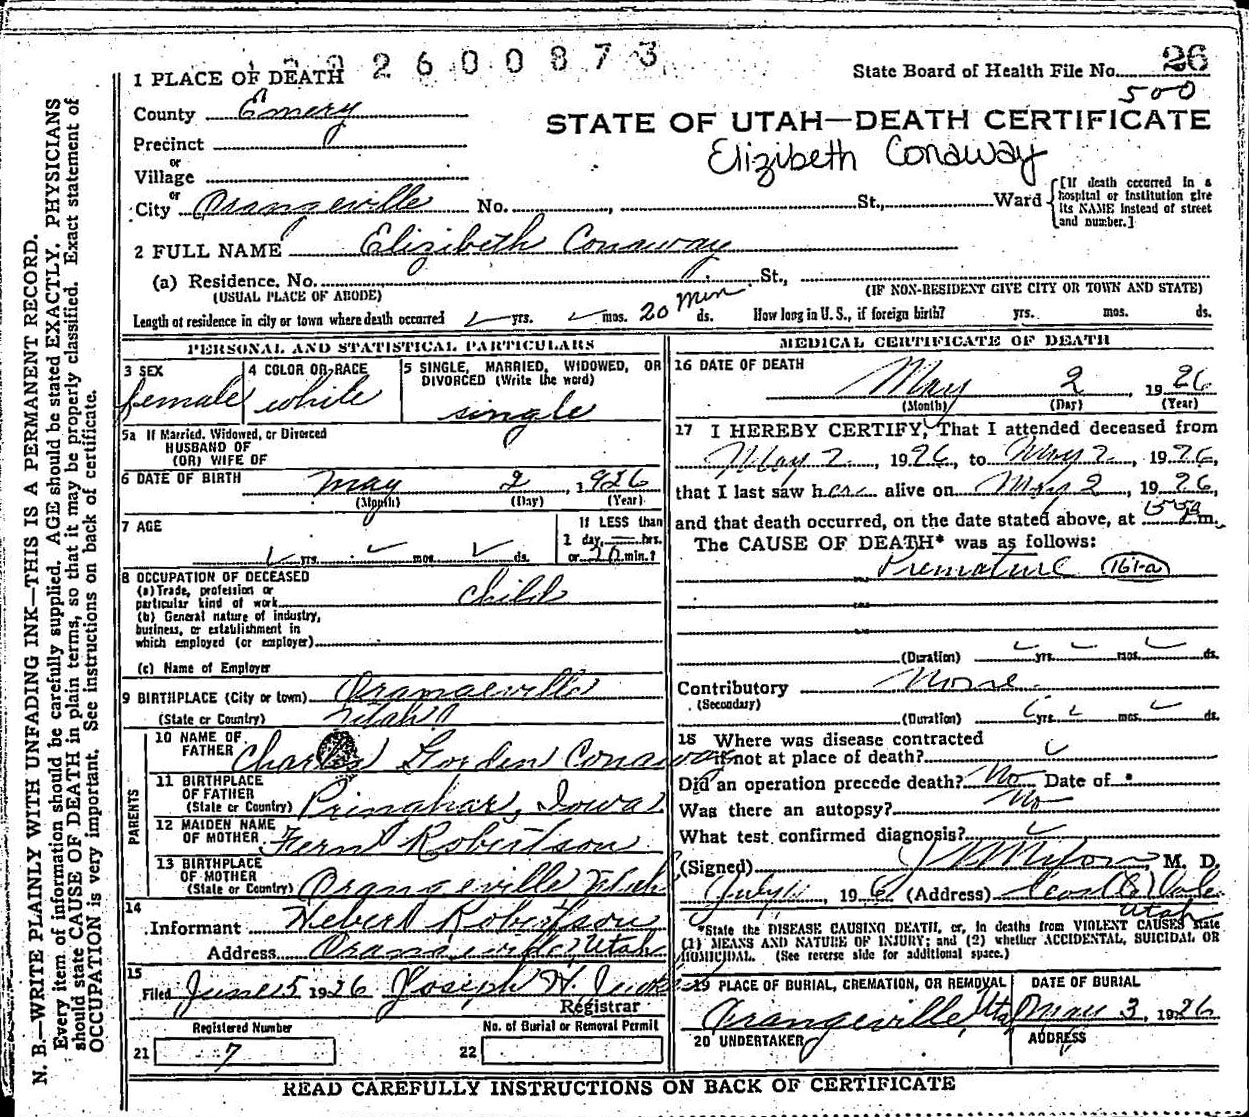 2600873
State Board of Health File No. 26
500
1 PLACE OF DEATH
County Emery
STATE OF UTAH—DEATH CERTIFICATE
Precinct
Elizibeth Conaway
or
Village
or
City Orangeville No. , St., Ward [If death occurred in a hospital or institution give its NAME instead of street and number.]
2 FULL NAME Elizibeth Conaway
(a) Residence. No. St.,
(USUAL PLACE OF ABODE) (IF NON-RESIDENT GIVE CITY OR TOWN AND STATE)
Length of residence in city or town where death occurred yrs. mos. 20 Min ds. How long in U. S., if foreign birth? yrs. mos. ds.
PERSONAL AND STATISTICAL PARTICULARS
3 SEX
female
4 COLOR OR RACE
white
5 SINGLE, MARRIED, WIDOWED, OR
DIVORCED (Write the word)
single
5a If Married, Widowed, or Divorced
HUSBAND OF
(OR) WIFE OF
6 DATE OF BIRTH May 2, 1926
(Month) (Day) (Year)
7 AGE
yrs. mos. ds.
If LESS than
1 day, hrs.
or 20 min.?
8 OCCUPATION OF DECEASED
(a) Trade, profession or
particular kind of work child
(b) General nature of industry,
business, or establishment in
which employed (or employer)
(c) Name of Employer
9 BIRTHPLACE (City or town) Orangeville
(State or Country) Utah
PARENTS
10 NAME OF
FATHER Charles Gorden Conaway
11 BIRTHPLACE
OF FATHER
(State or Country) Primghar, Iowa
12 MAIDEN NAME
OF MOTHER Fern Robertson
13 BIRTHPLACE
OF MOTHER
(State or Country) Orangeville Utah
14
Informant Heber Robertson
Address Orangeville, Utah
15
Filed June 5 1926 Joseph H.
Registrar
Registered Number
21 7
No. of Burial or Removal Permit
22
MEDICAL CERTIFICATE OF DEATH
16 DATE OF DEATH
May 2, 1926
(Month) (Day) (Year)
17 I HEREBY CERTIFY, That I attended deceased from
May 2, 1926, to May 2, 1926,
that I last saw her alive on May 2, 1926,
and that death occurred, on the date stated above, at m.
The CAUSE OF DEATH* was as follows:
Premature 161-a
(Duration) yrs. mos. ds.
Contributory None
(Secondary)
(Duration) yrs. mos. ds.
18 Where was disease contracted
if not at place of death?
Did an operation precede death? No Date of
Was there an autopsy? No
What test confirmed diagnosis?
(Signed) M. D.
July 1, 1926 (Address) Castle Dale
Utah
*State the DISEASE CAUSING DEATH, or, in deaths from VIOLENT CAUSES state
(1) MEANS AND NATURE OF INJURY; and (2) whether ACCIDENTAL, SUICIDAL OR
HOMICIDAL. (See reverse side for additional space.)
19 PLACE OF BURIAL, CREMATION, OR REMOVAL
Orangeville, Uta
DATE OF BURIAL
May 3, 1926
20 UNDERTAKER
ADDRESS
READ CAREFULLY INSTRUCTIONS ON BACK OF CERTIFICATE
N. B.—WRITE PLAINLY WITH UNFADING INK—THIS IS A PERMANENT RECORD.
Every item of information should be carefully supplied. AGE should be stated EXACTLY. PHYSICIANS
should state CAUSE OF DEATH in plain terms, so that it may be properly classified. Exact statement of
OCCUPATION is very important. See instructions on back of certificate.